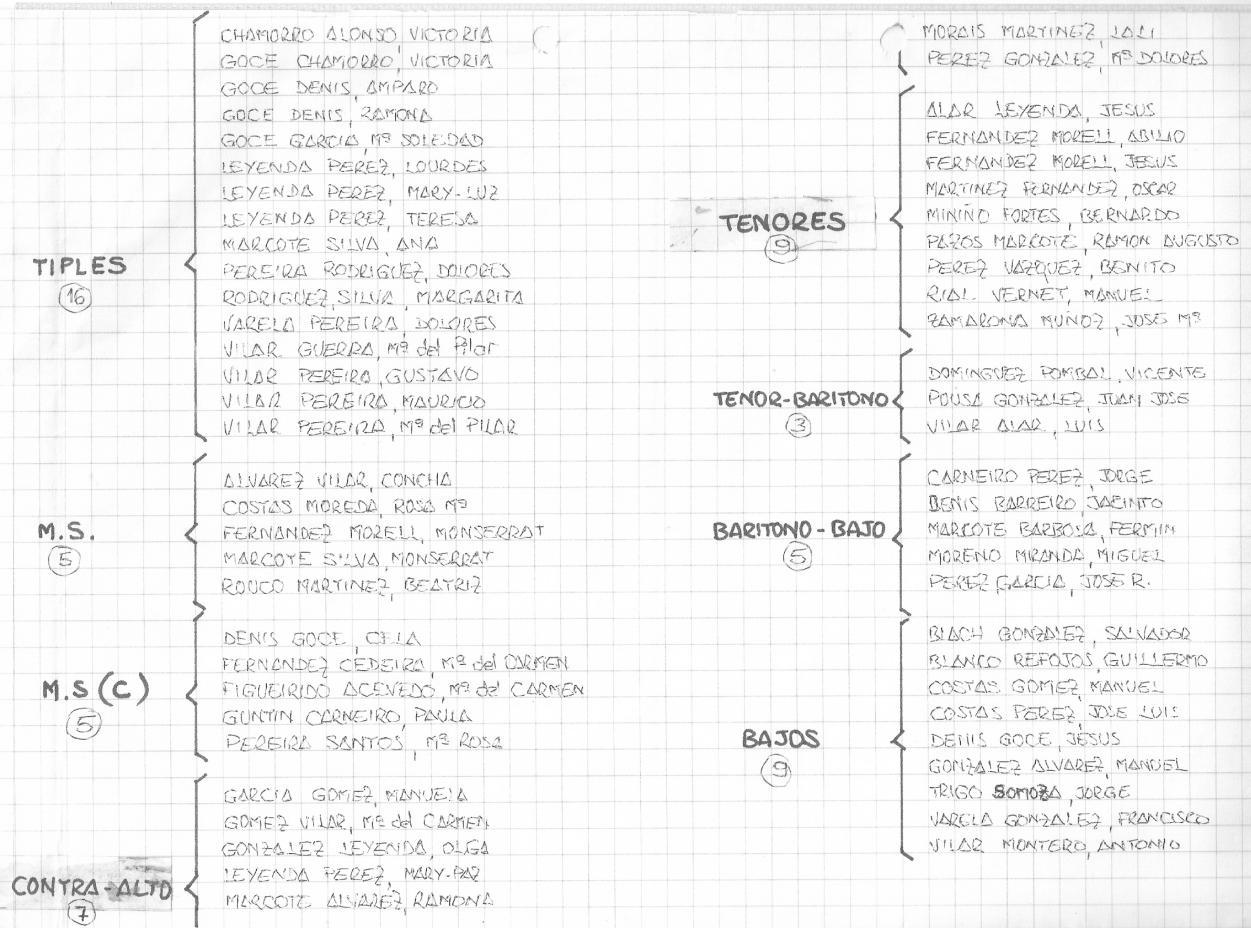 TIPLES
16
CHAMORRO ALONSO, VICTORIA
GOCE CHAMORRO, VICTORIA
GOCE DENIS, AMPARO
GOCE DENIS, RAMONA
GOCE GARCIA, Mª SOLEDAD
LEYENDA PEREZ, LOURDES
LEYENDA PEREZ, MARY-LUZ
LEYENDA PEREZ, TERESA
MARCOTE SILVA, ANA
PEREIRA RODRIGUEZ, DOLORES
RODRIGUEZ SILVA, MARGARITA
VARELA PEREIRA, DOLORES
VILAR GUERRA, Mª del Pilar
VILAR PEREIRA, GUSTAVO
VILAR PEREIRA, MAURICIO
VILAR PEREIRA, Mª del PILAR
M.S.
5
ALVAREZ VILAR, CONCHA
COSTAS MOREDA, ROSA Mª
FERNANDEZ MORELL, MONSERRAT
MARCOTE SILVA, MONSERRAT
ROUCO MARTINEZ, BEATRIZ
M.S (C)
5
DENIS GOCE, CELA
FERNANDEZ CEDEIRA, Mª del CARMEN
FIGUEIRIDO ACEVEDO, Mª del CARMEN
GUNTIN CARNEIRO, PAULA
PEREIRA SANTOS, Mª ROSA
CONTRA-ALTO
7
GARCIA GOMEZ, MANUELA
GOMEZ VILAR, Mª del CARMEN
GONZALEZ LEYENDA, OLGA
LEYENDA PEREZ, MARY-PAZ
MARCOTE ALVAREZ, RAMONA
MORAIS MARTINEZ, LALI
PEREZ GONZALEZ, Mª DOLORES
TENORES
9
ALAR LEYENDA, JESUS
FERNANDEZ MORELL, ABILIO
FERNANDEZ MORELL, JESUS
MARTINEZ FERNANDEZ, OSCAR
MINIÑO FORTES, BERNARDO
PAZOS MARCOTE, RAMON AUGUSTO
PEREZ VAZQUEZ, BENITO
RIAL VERNET, MANUEL
ZAMARONA MUÑOZ, JOSE Mª
TENOR-BARITONO
3
DOMINGUEZ POMBAL, VICENTE
POUSA GONZALEZ, JUAN JOSE
VILAR ALAR, LUIS
BARITONO-BAJO
5
CARNEIRO PEREZ, JORGE
DENIS BARREIRO, JACINTO
MARCOTE BARBOSA, FERMIN
MORENO MIRANDA, MIGUEL
PEREZ GARCIA, JOSE R.
BAJOS
9
BLACH GONZALEZ, SALVADOR
BLANCO REFOJOS, GUILLERMO
COSTAS GOMEZ, MANUEL
COSTAS PEREZ, JOSE LUIS
DENIS GOCE, JESUS
GONZALEZ ALVAREZ, MANUEL
TRIGO SOMOZA, JORGE
VARELA GONZALEZ, FRANCISCO
VILAR MONTERO, ANTONIO